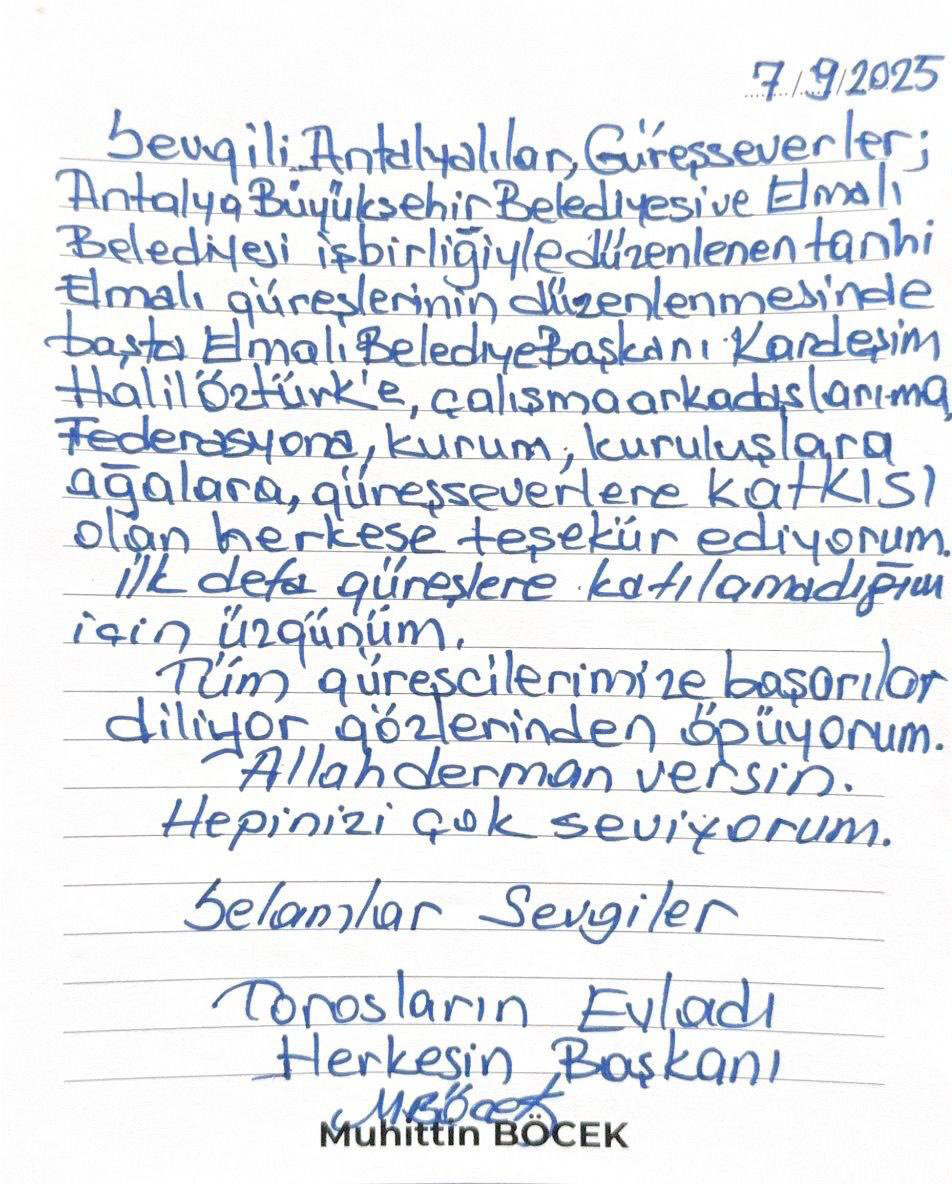 7/9/2025
Sevgili Antalyalılar, Güreşseverler;
Antalya Büyükşehir Belediyesi ve Elmalı
Belediyesi işbirliğiyle düzenlenen tarihi
Elmalı güreşlerinin düzenlenmesinde
başta Elmalı Belediye Başkanı Kardeşim
Halil Öztürk'e, çalışma arkadaşlarıma,
Federasyona, kurum, kuruluşlara
ağalara, güreşseverlere katkısı
olan herkese teşekür ediyorum.
ilk defa güreşlere katılamadığım
için üzgünüm.
Tüm güreşcilerimize başarılar
diliyor gözlerinden öpüyorum.
Allah derman versin.
Hepinizi çok seviyorum.
Selamlar Sevgiler
Torosların Evladı
Herkesin Başkanı
MBöcek
Muhittin BÖCEK